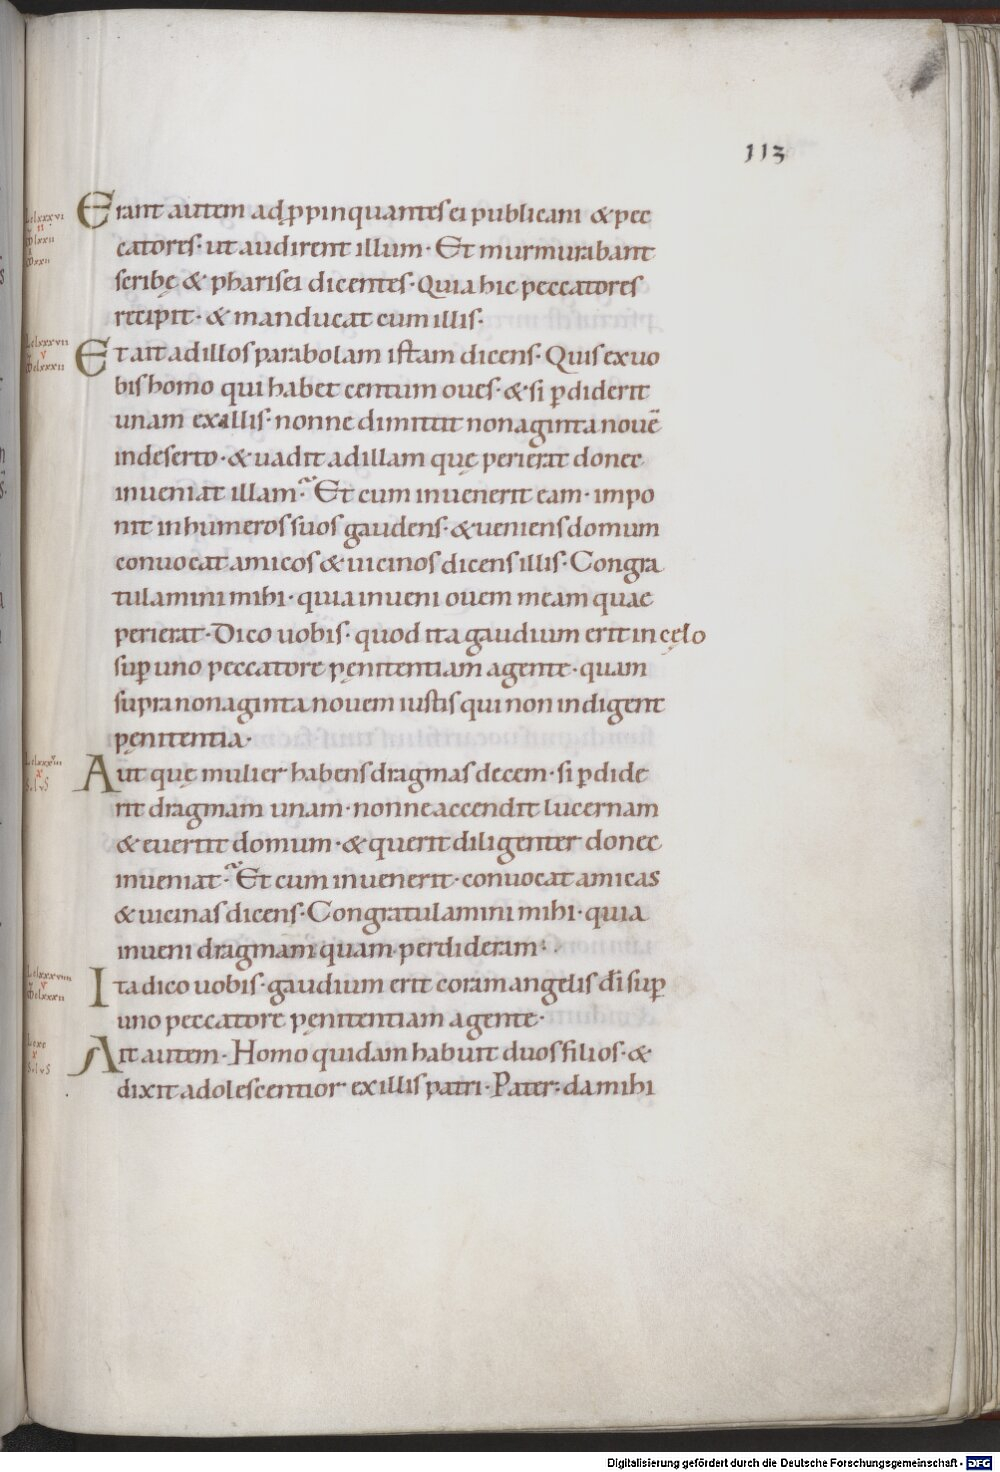 113
Erant autem adp̱pinquantes ei publicani & pec
catores· ut audirent illum· Et murmurabant
scribę & pharisei dicentes· Quia hic peccatores
recipit· & manducat cum illis·
Et ait ad illos parabolam istam dicens· Quis ex uo
bis homo qui habet centum oues· & si p̲diderit
unam ex illis· nonne dimittit nonaginta nouē
in deserto· & uadit ad illam quę perierat donec
inueniat illam· Et cum inuenerit eam· impo
nit in humeros suos gaudens· & ueniens domum
conuocat amicos & uicinos dicens illis· Congra
tulamini mihi· quia inueni ouem meam quae
perierat· Dico uobis· quod ita gaudium erit in cęlo
sup̲ uno peccatore pęnitentiam agente· quam
supra nonaginta nouem iustis qui non indigent
pęnitentia·
Aut quę mulier habens dragmas decem· si p̲dide
rit dragmam unam· nonne accendit lucernam
& euertit domum· & querit diligenter donec
inueniat· Et cum inuenerit· conuocat amicas
& uicinas dicens· Congratulamini mihi· quia
inueni dragmam quam perdideram·
Ita dico uobis· gaudium erit coram angelis dī sup̲
uno peccatore pęnitentiam agente·
Ait autem· Homo quidam habuit duos filios· &
dixit adolescentior ex illis patri· Pater· da mihi
Digitalisierung gefördert durch die Deutsche Forschungsgemeinschaft - DFG